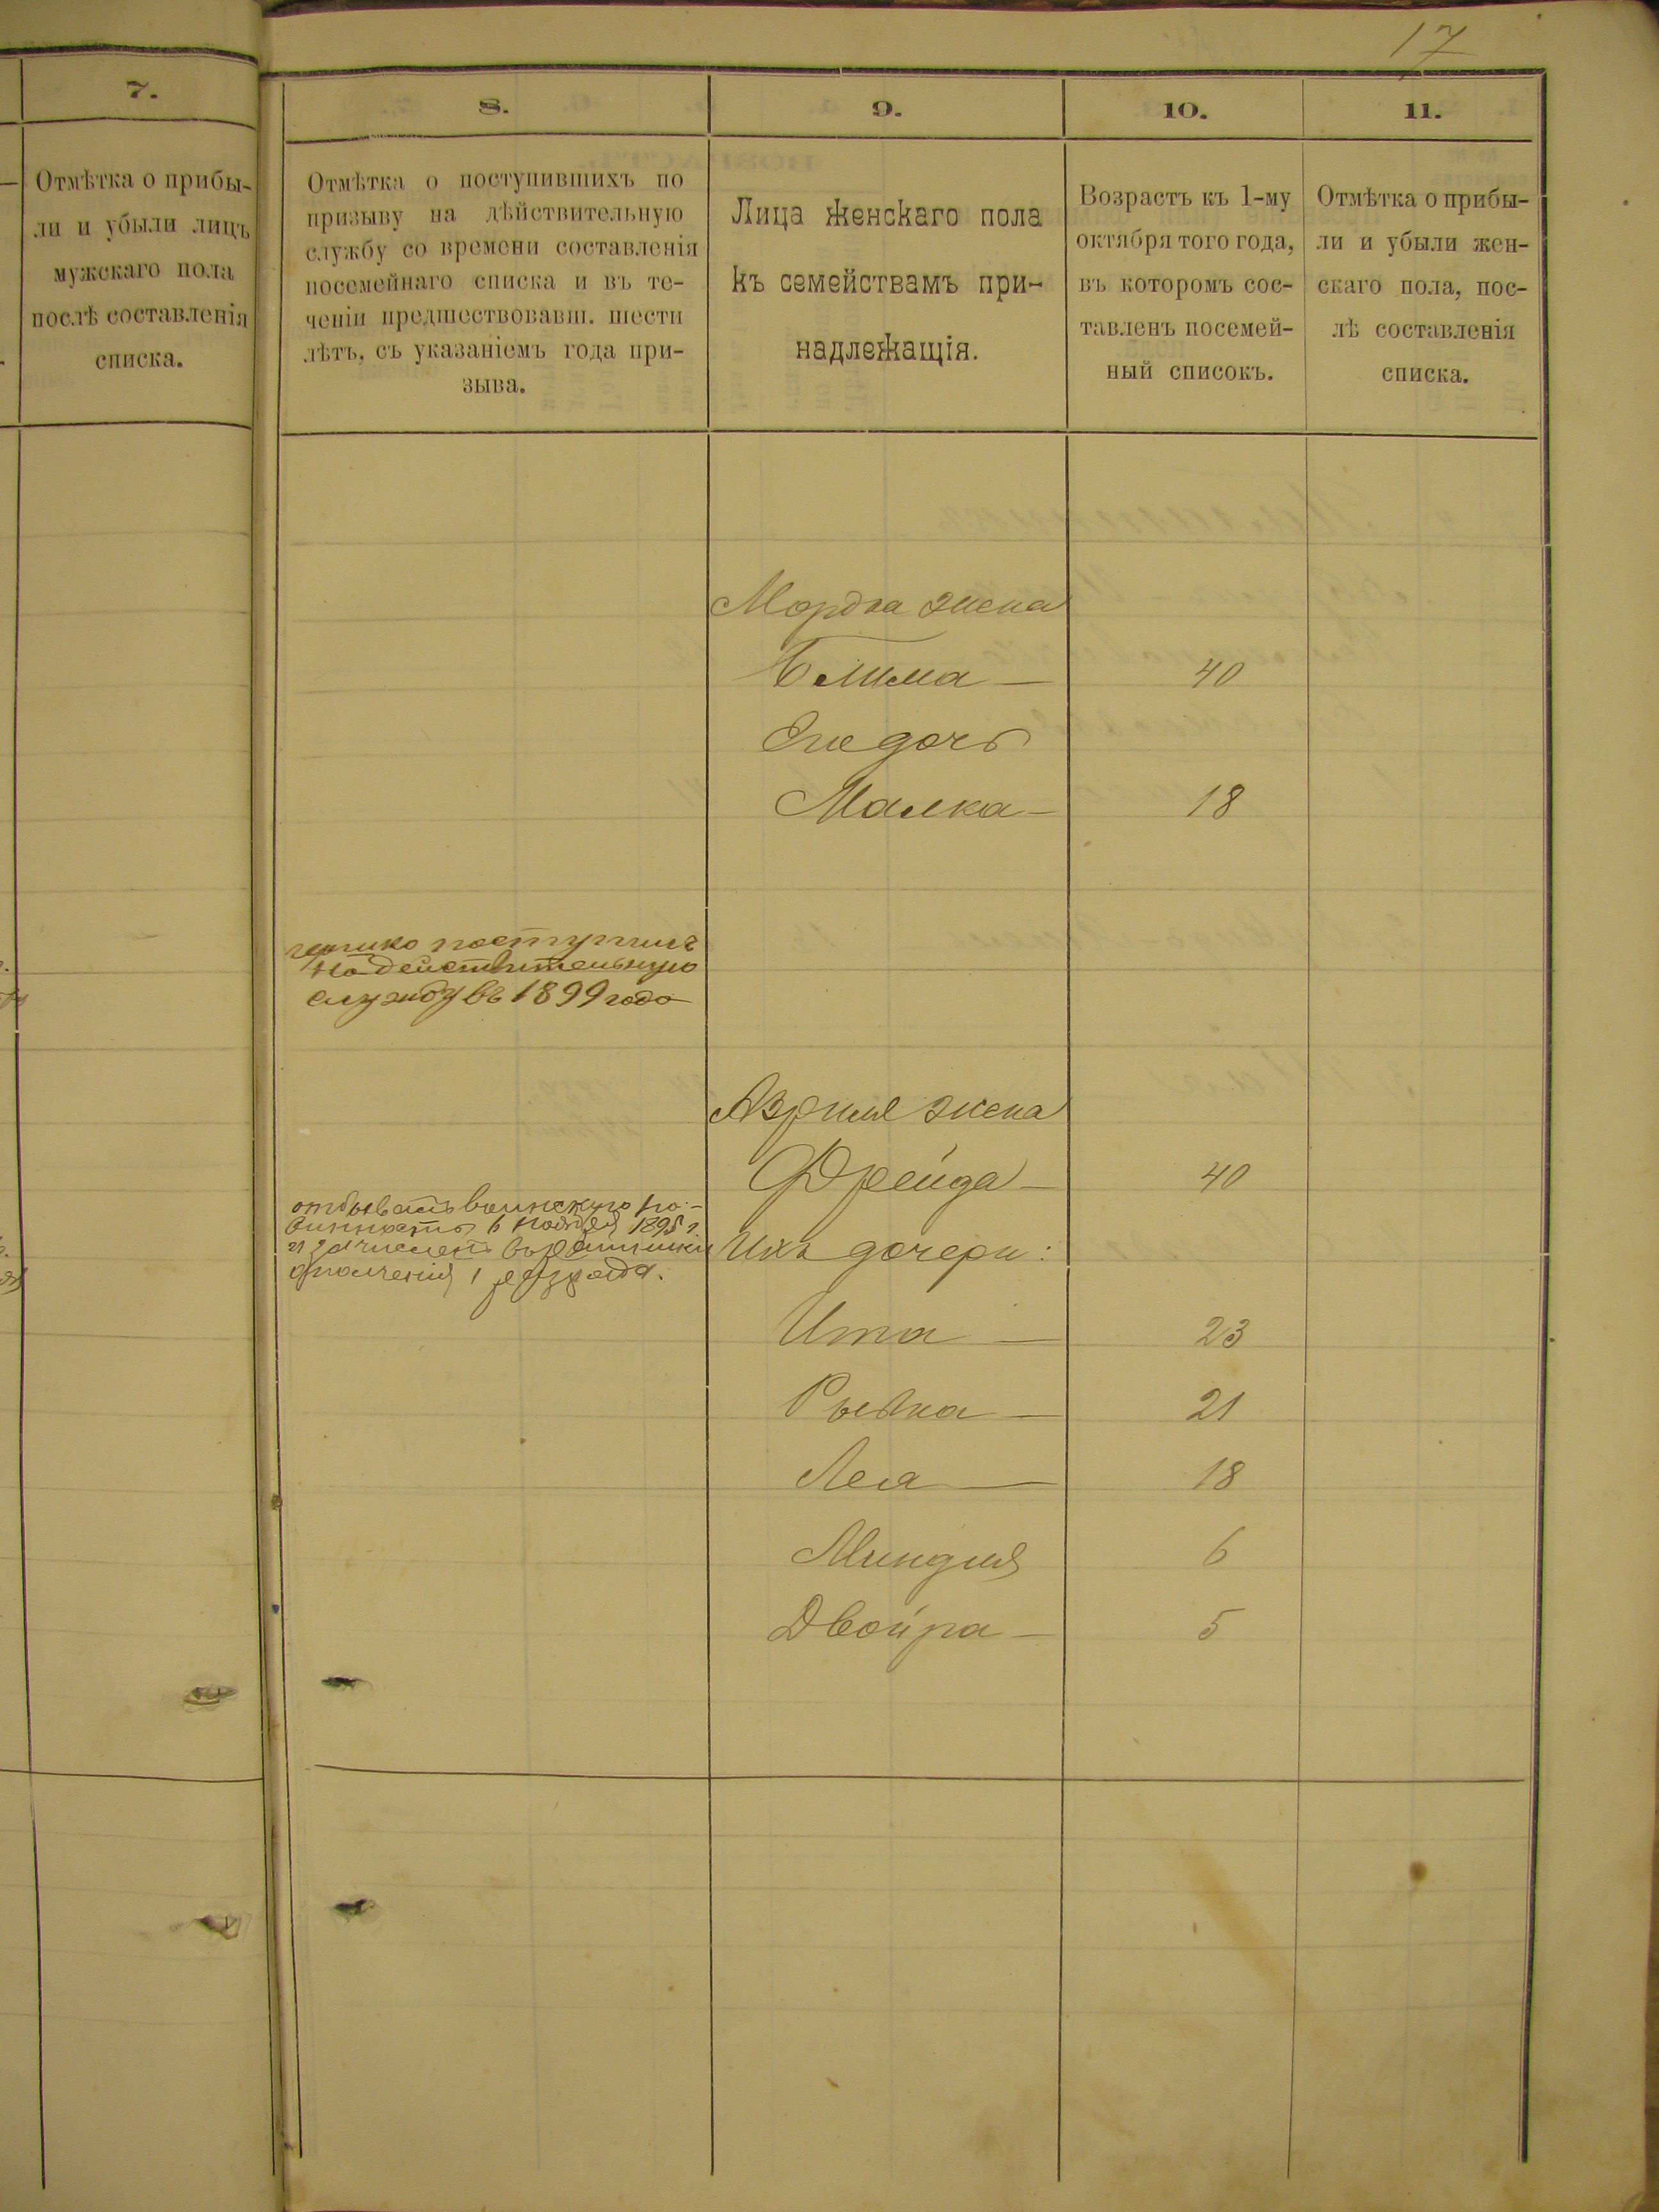 17
7.
Отмѣтка о прибы-
ли и убыли лицъ
мужскаго пола
послѣ составленія
списка.
8.
Отмѣтка о поступившихъ по
призыву на дѣйствительную
службу со времени составленія
посемейнаго списка и въ те-
ченіи предшествовавш. шести
лѣтъ, съ указаніемъ года при-
зыва.
9.
Лица женскаго пола
къ семействамъ при-
надлежащія.
10.
Возрастъ къ 1-му
октября того года,
въ которомъ сос-
тавленъ посемей-
ный списокъ.
11.
Отмѣтка о прибы-
ли и убыли жен-
скаго пола, пос-
лѣ составленія
списка.
Мордка жена
Блима — 40
Ею дочь
Малка — 18
поступилъ
на действительную
службу въ 1899 года
Азриля жена
Фрейда — 40
отбывалъ воинскую по-
винность 6 ноября 1895 г.
и зачисленъ въ ратники
ополченія 1 разряда.
Ихъ дочери:
Ита — 23
Рывка — 21
Леа — 18
Миндля 6
Двойра — 5